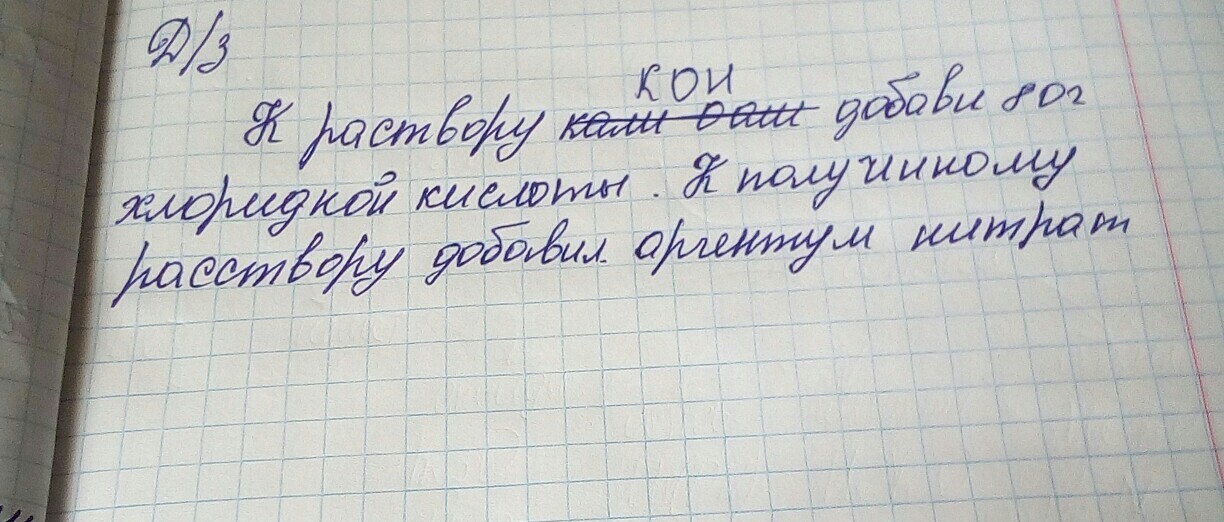 Д/З
КОН
К раствору кали оаш добави 80г
хлоридной кислоты. К получиному
расствору добавил аргентум нитрат